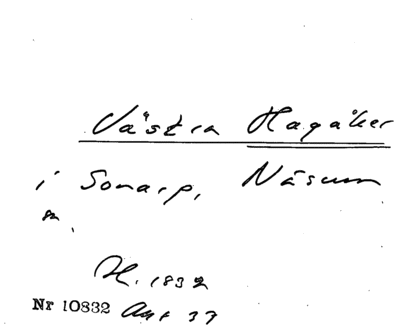 Västra Hagåker
i Sonarp, Näsum
sn.
H. 1832
Nr 10832 Akt 37